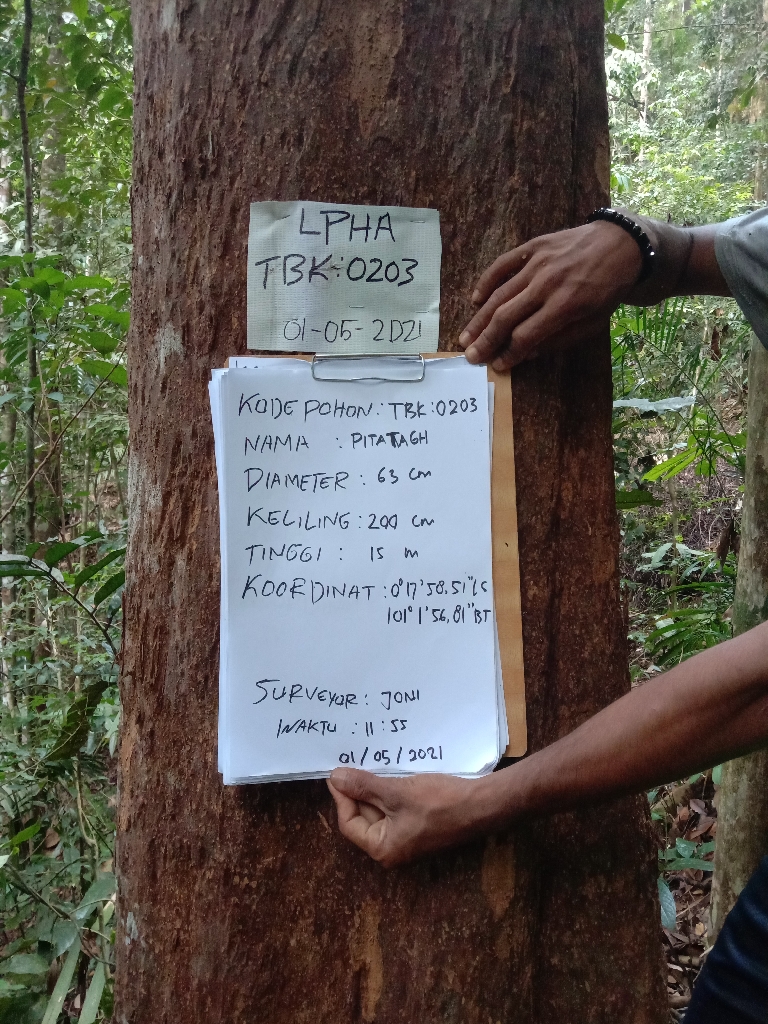 LPHA
TBK:0203
01-05-2021
KODE POHON: TBK:0203
NAMA : PITATAGH
DIAMETER : 63 cm
KELILING : 200 cm
TINGGI : 15 m
KOORDINAT : 0°17'58.51"LS
101°1'56,81"BT
SURVEYOR : JONI
WAKTU : 11:55
01/05/2021